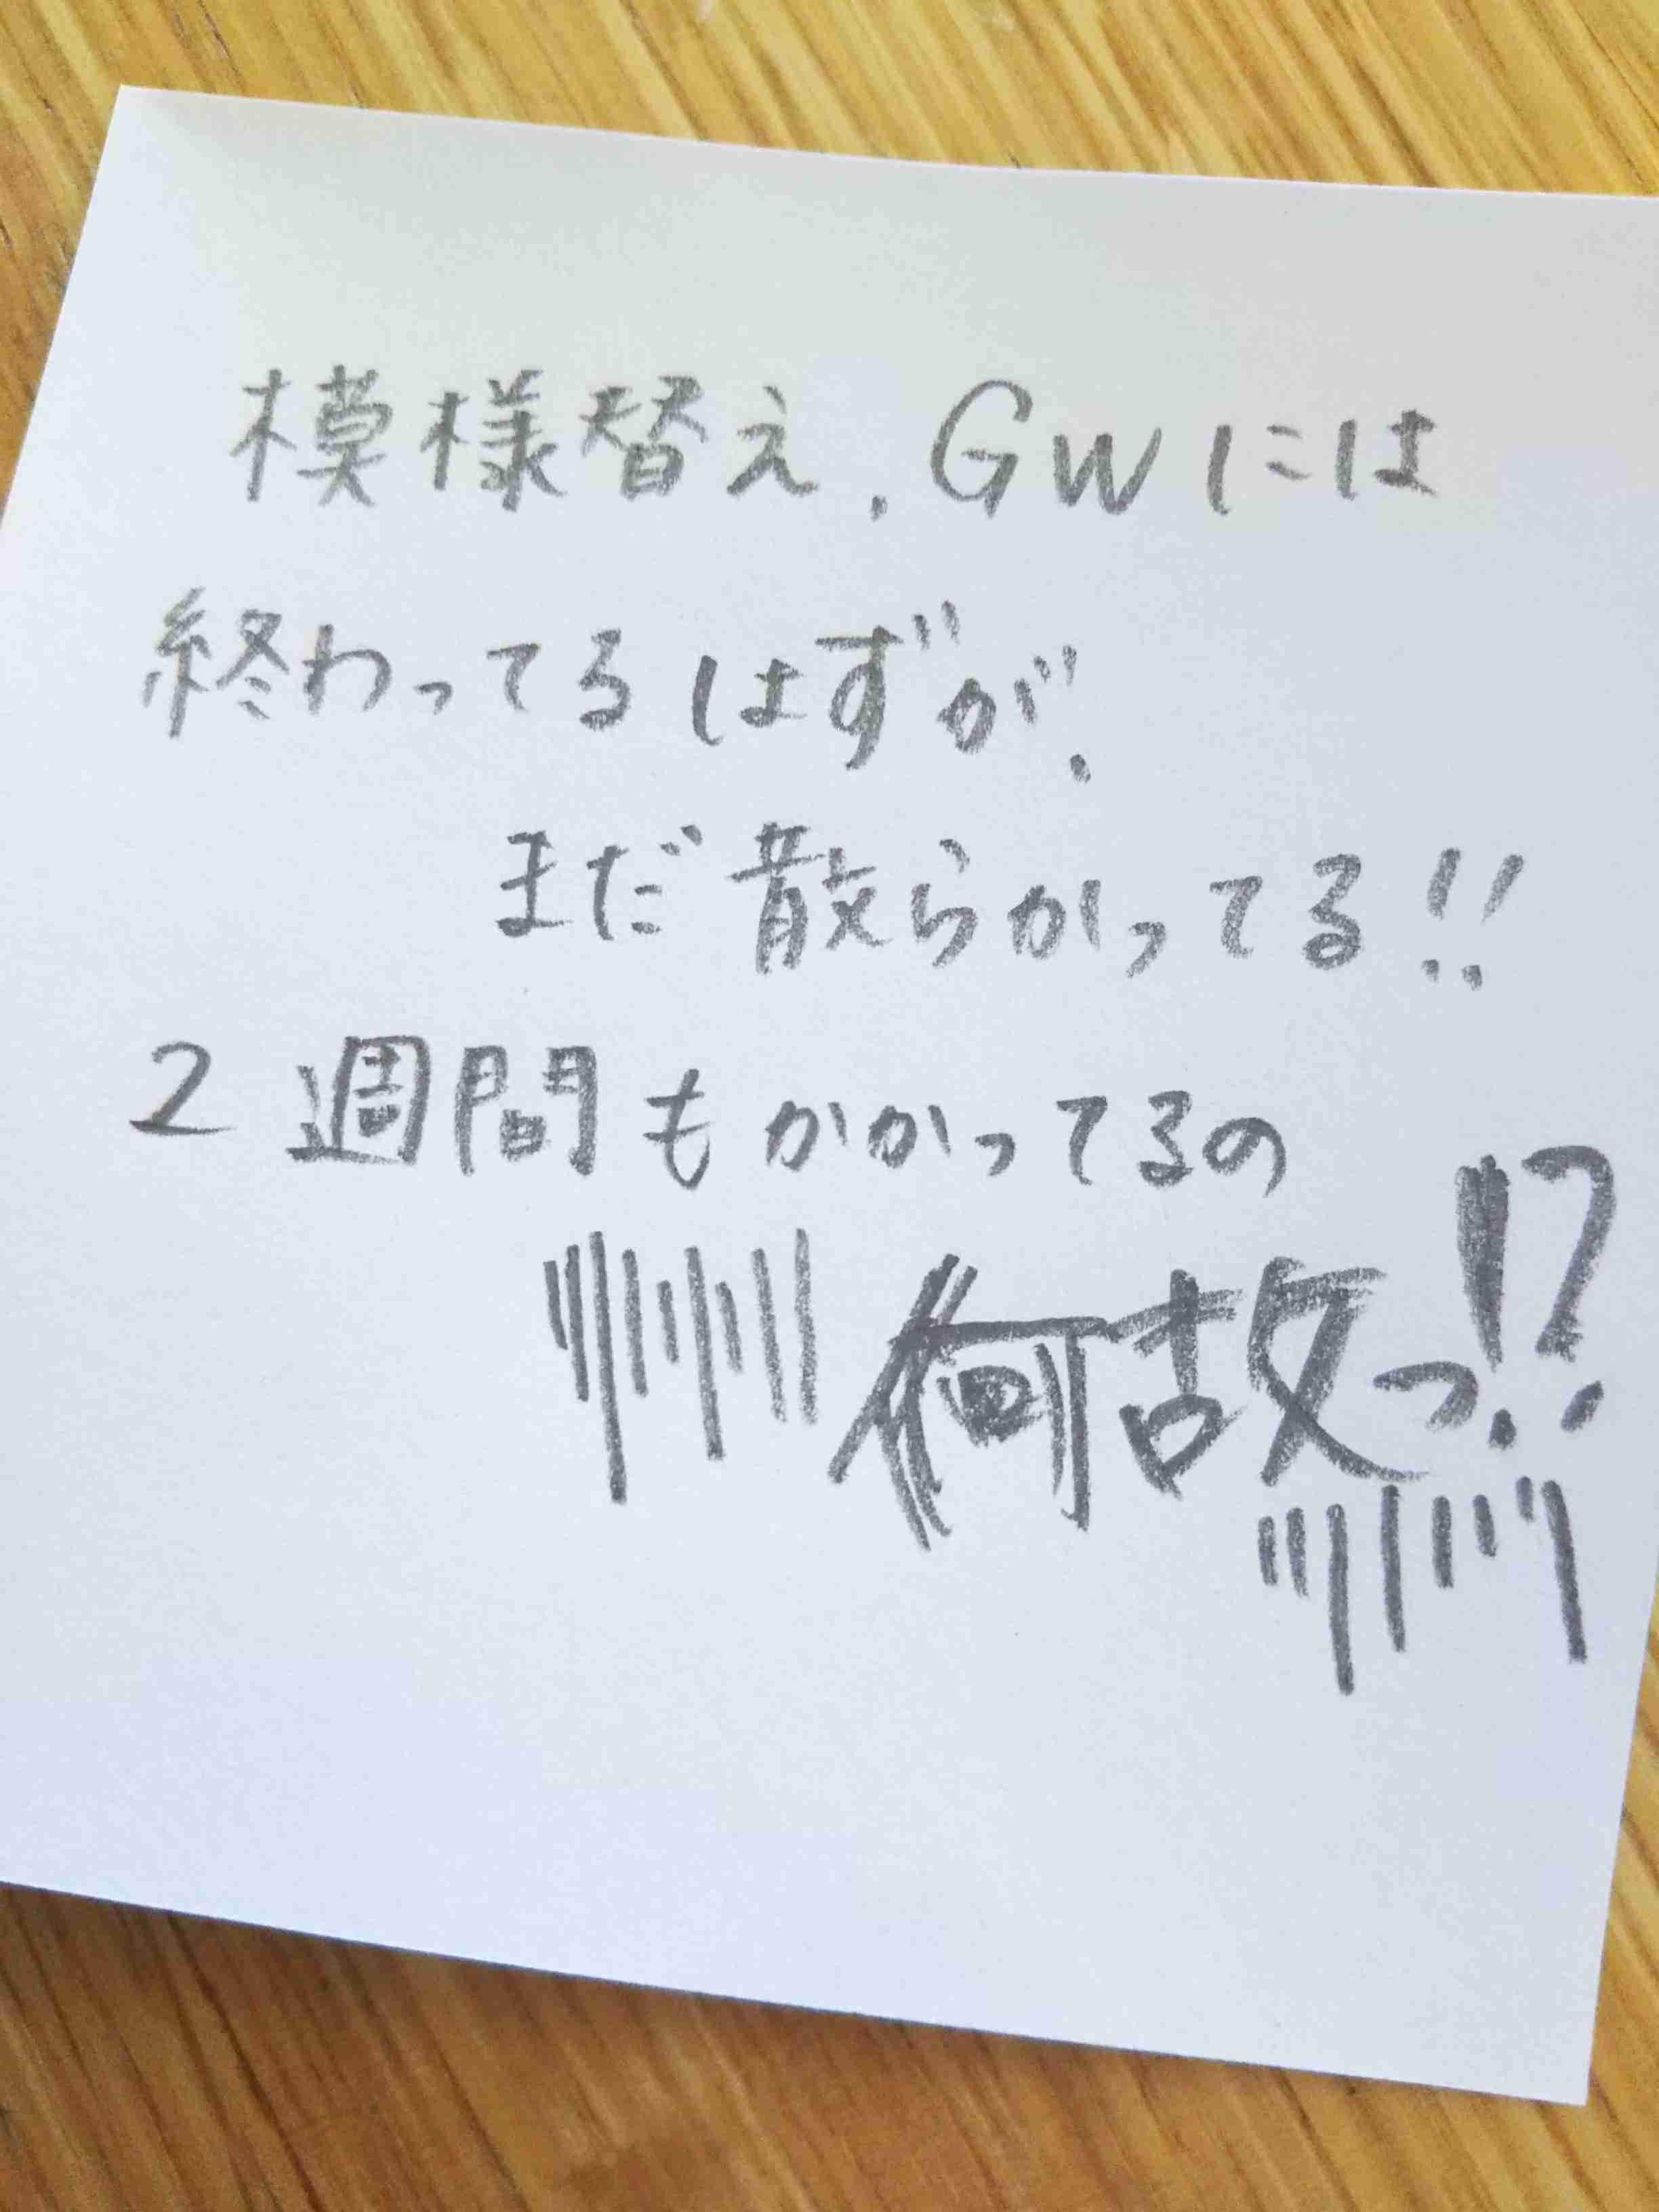 模様替え、GWには
終わってるはずが、
まだ散らかってる!!
2週間もかかってるの
何故っ!?